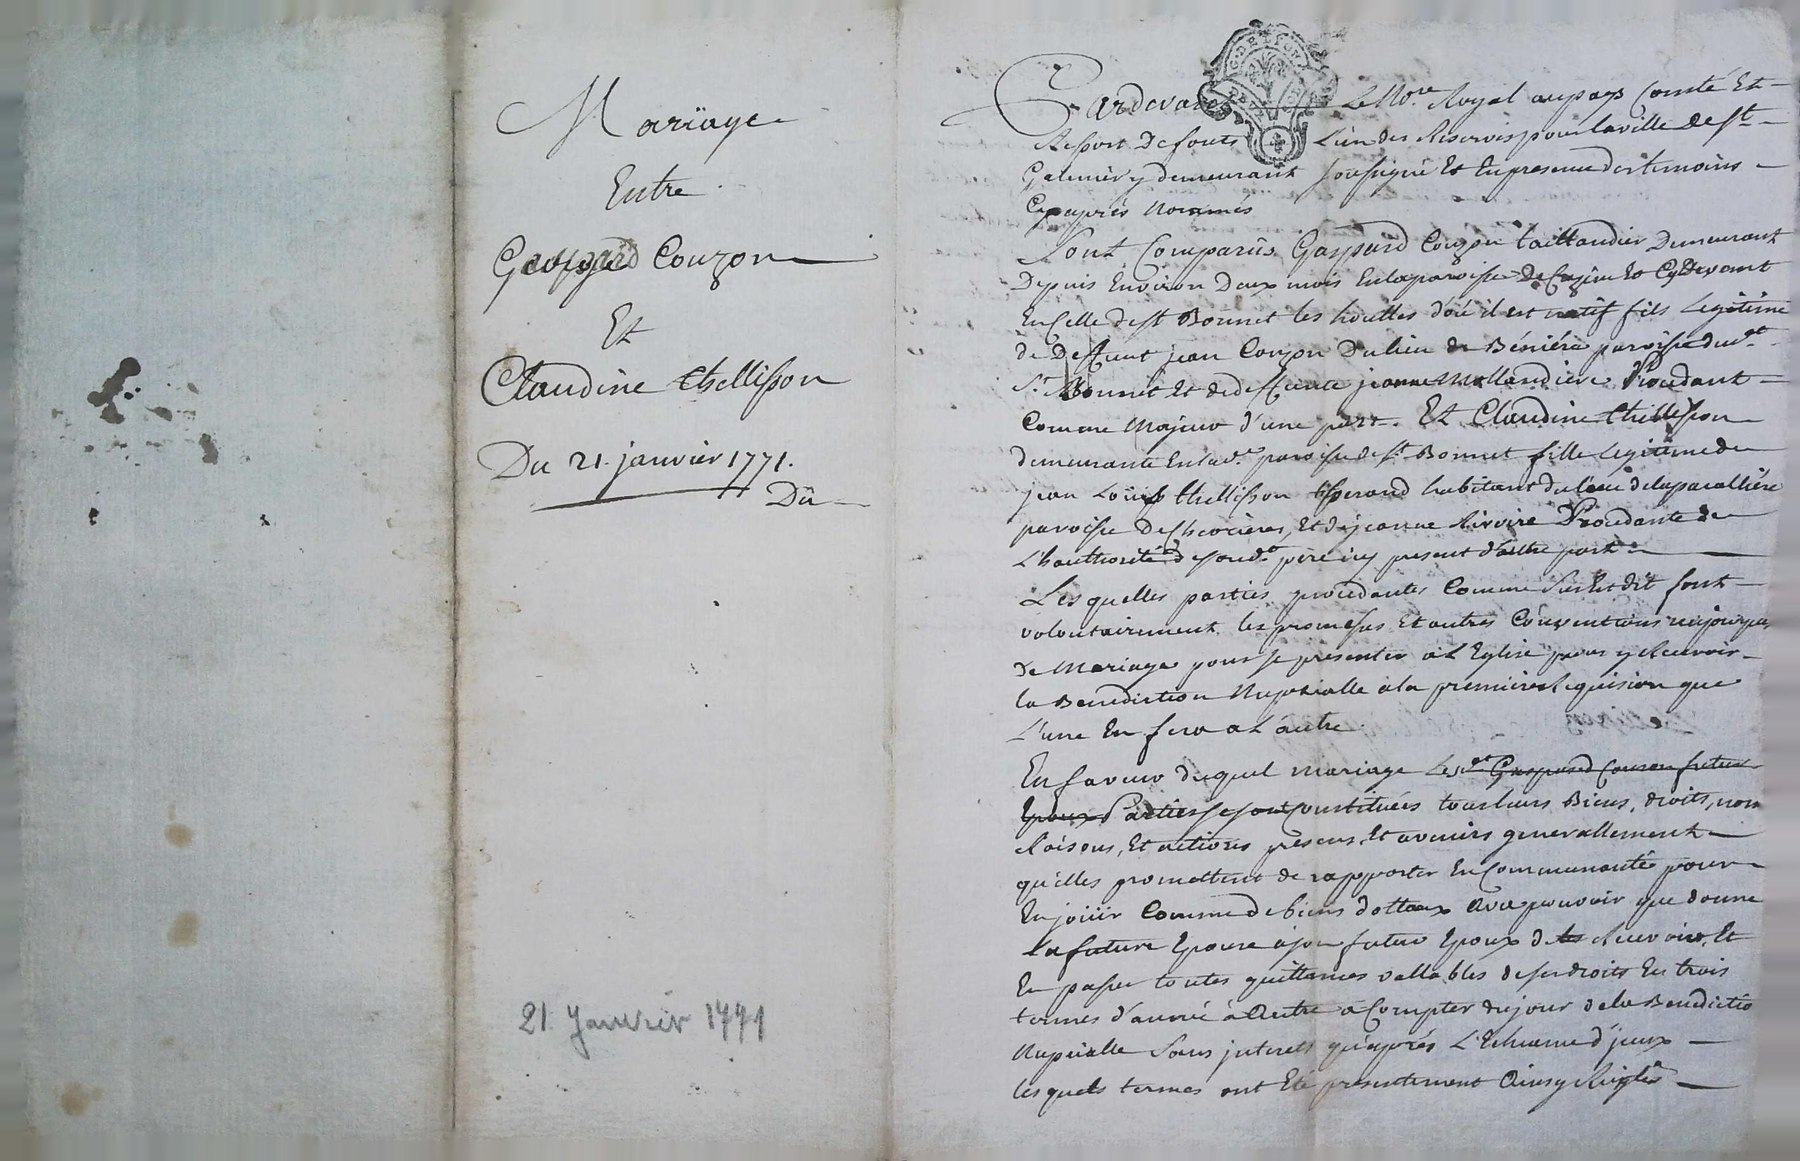 Mariage
Entre
Gaspard Couzon
Et
Claudine thellisson
Du 21. janvier 1771.
Du
21 Janvier 1771
Pardevant Le No.re Royal au pays Comté Et
Ressort De forets Lieu des Reserves pour la ville de St
Galmier y demeurant soussigné Et En presence des temoins
Cy apres Nommés
Sont Comparûs Gaspard Couzon taillandier Demeurant
Depuis Environ Deux mois En la paroisse de Et Cy Devant
En Celle de st Bonnet les houlles d'où il est natif fils Legitime
de Deffunt jean Couzon Du lieu de paroisse du d.t
S.t Bonnet Et de deffunte jeanne Procedant
Comme Majeur d'une part. Et Claudine thellisson
demeurante En la d.e paroisse de st Bonnet fille Legitime de
jean Loüis thellisson tisserand habitant du lieu de la
paroisse De Et de jeanne Rivoire Procedante de
L'hauthorité de son d.t père icy present d'autre part
Les quelles parties procedantes Comme Sus Est dit font
volontairement les promesses Et autres Conventions
de Mariage pour se presenter à L'Eglise pour y Recevoir
la Benediction Nuptialle à la premiere Requision que
L'une En fera a L'autre
En faveur duquel mariage Le d.t Gaspard Couzon futur
Epoux Parties se sont Constituées tous leurs Biens, droits, noms
Raisons, Et actions presens, Et avenirs generallement
qu'elles promettent de rapporter En Communauté pour
En joüir Comme de biens dottaux avec pouvoir que donne
La future Epouse à son futur Epoux de les Recevoir, Et
En passer toutes quittances vallables de ses droits En trois
termes d'année à Autre a Compter du jour de la Benedictio
Nuptialle Sans interets qu'après L'Echeance d'jceux
lesquels termes ont Eté presentement Ainsy Reiglés